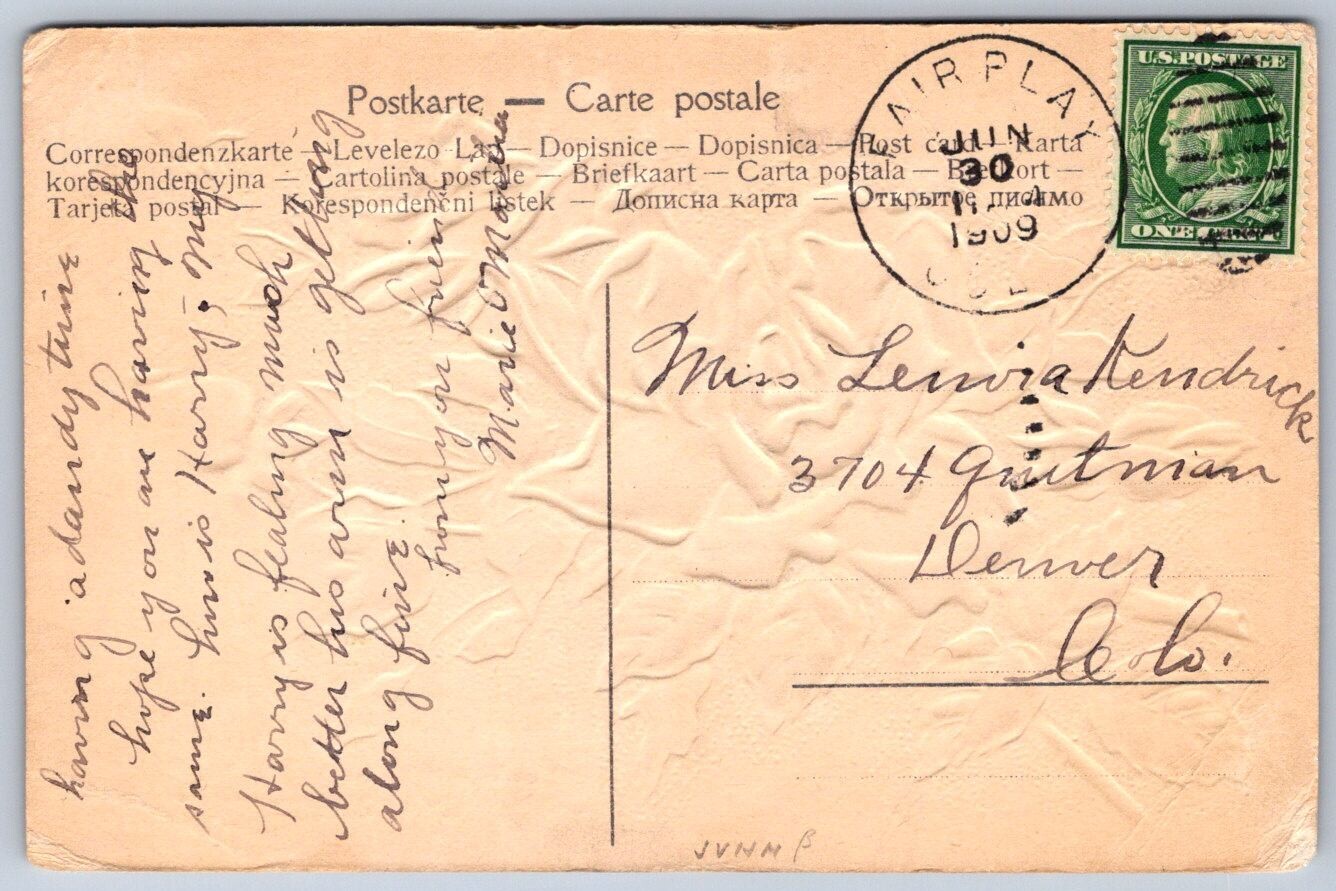 Postkarte — Carte postale
Correspondenzkarte — Levelezo-Lap — Dopisnice — Dopisnica — Post card — Karta
korespondencyjna — Cartolina postale — Briefkaart — Carta postala — Brefkort —
Tarjeta postal — Korespondenčni listek — Дописна карта — Открытое письмо
FAIRPLAY
JUN
30
A
1909
COL
U.S. POSTAGE
ONE CENT
having a dandy time
hope you are having the
same. how is Harry, my
Harry is fealing much
better his arm is getting
along fine.
from your friend
Marie
Miss Lenora Kendrick
3704 Quitman
Denver
Colo.